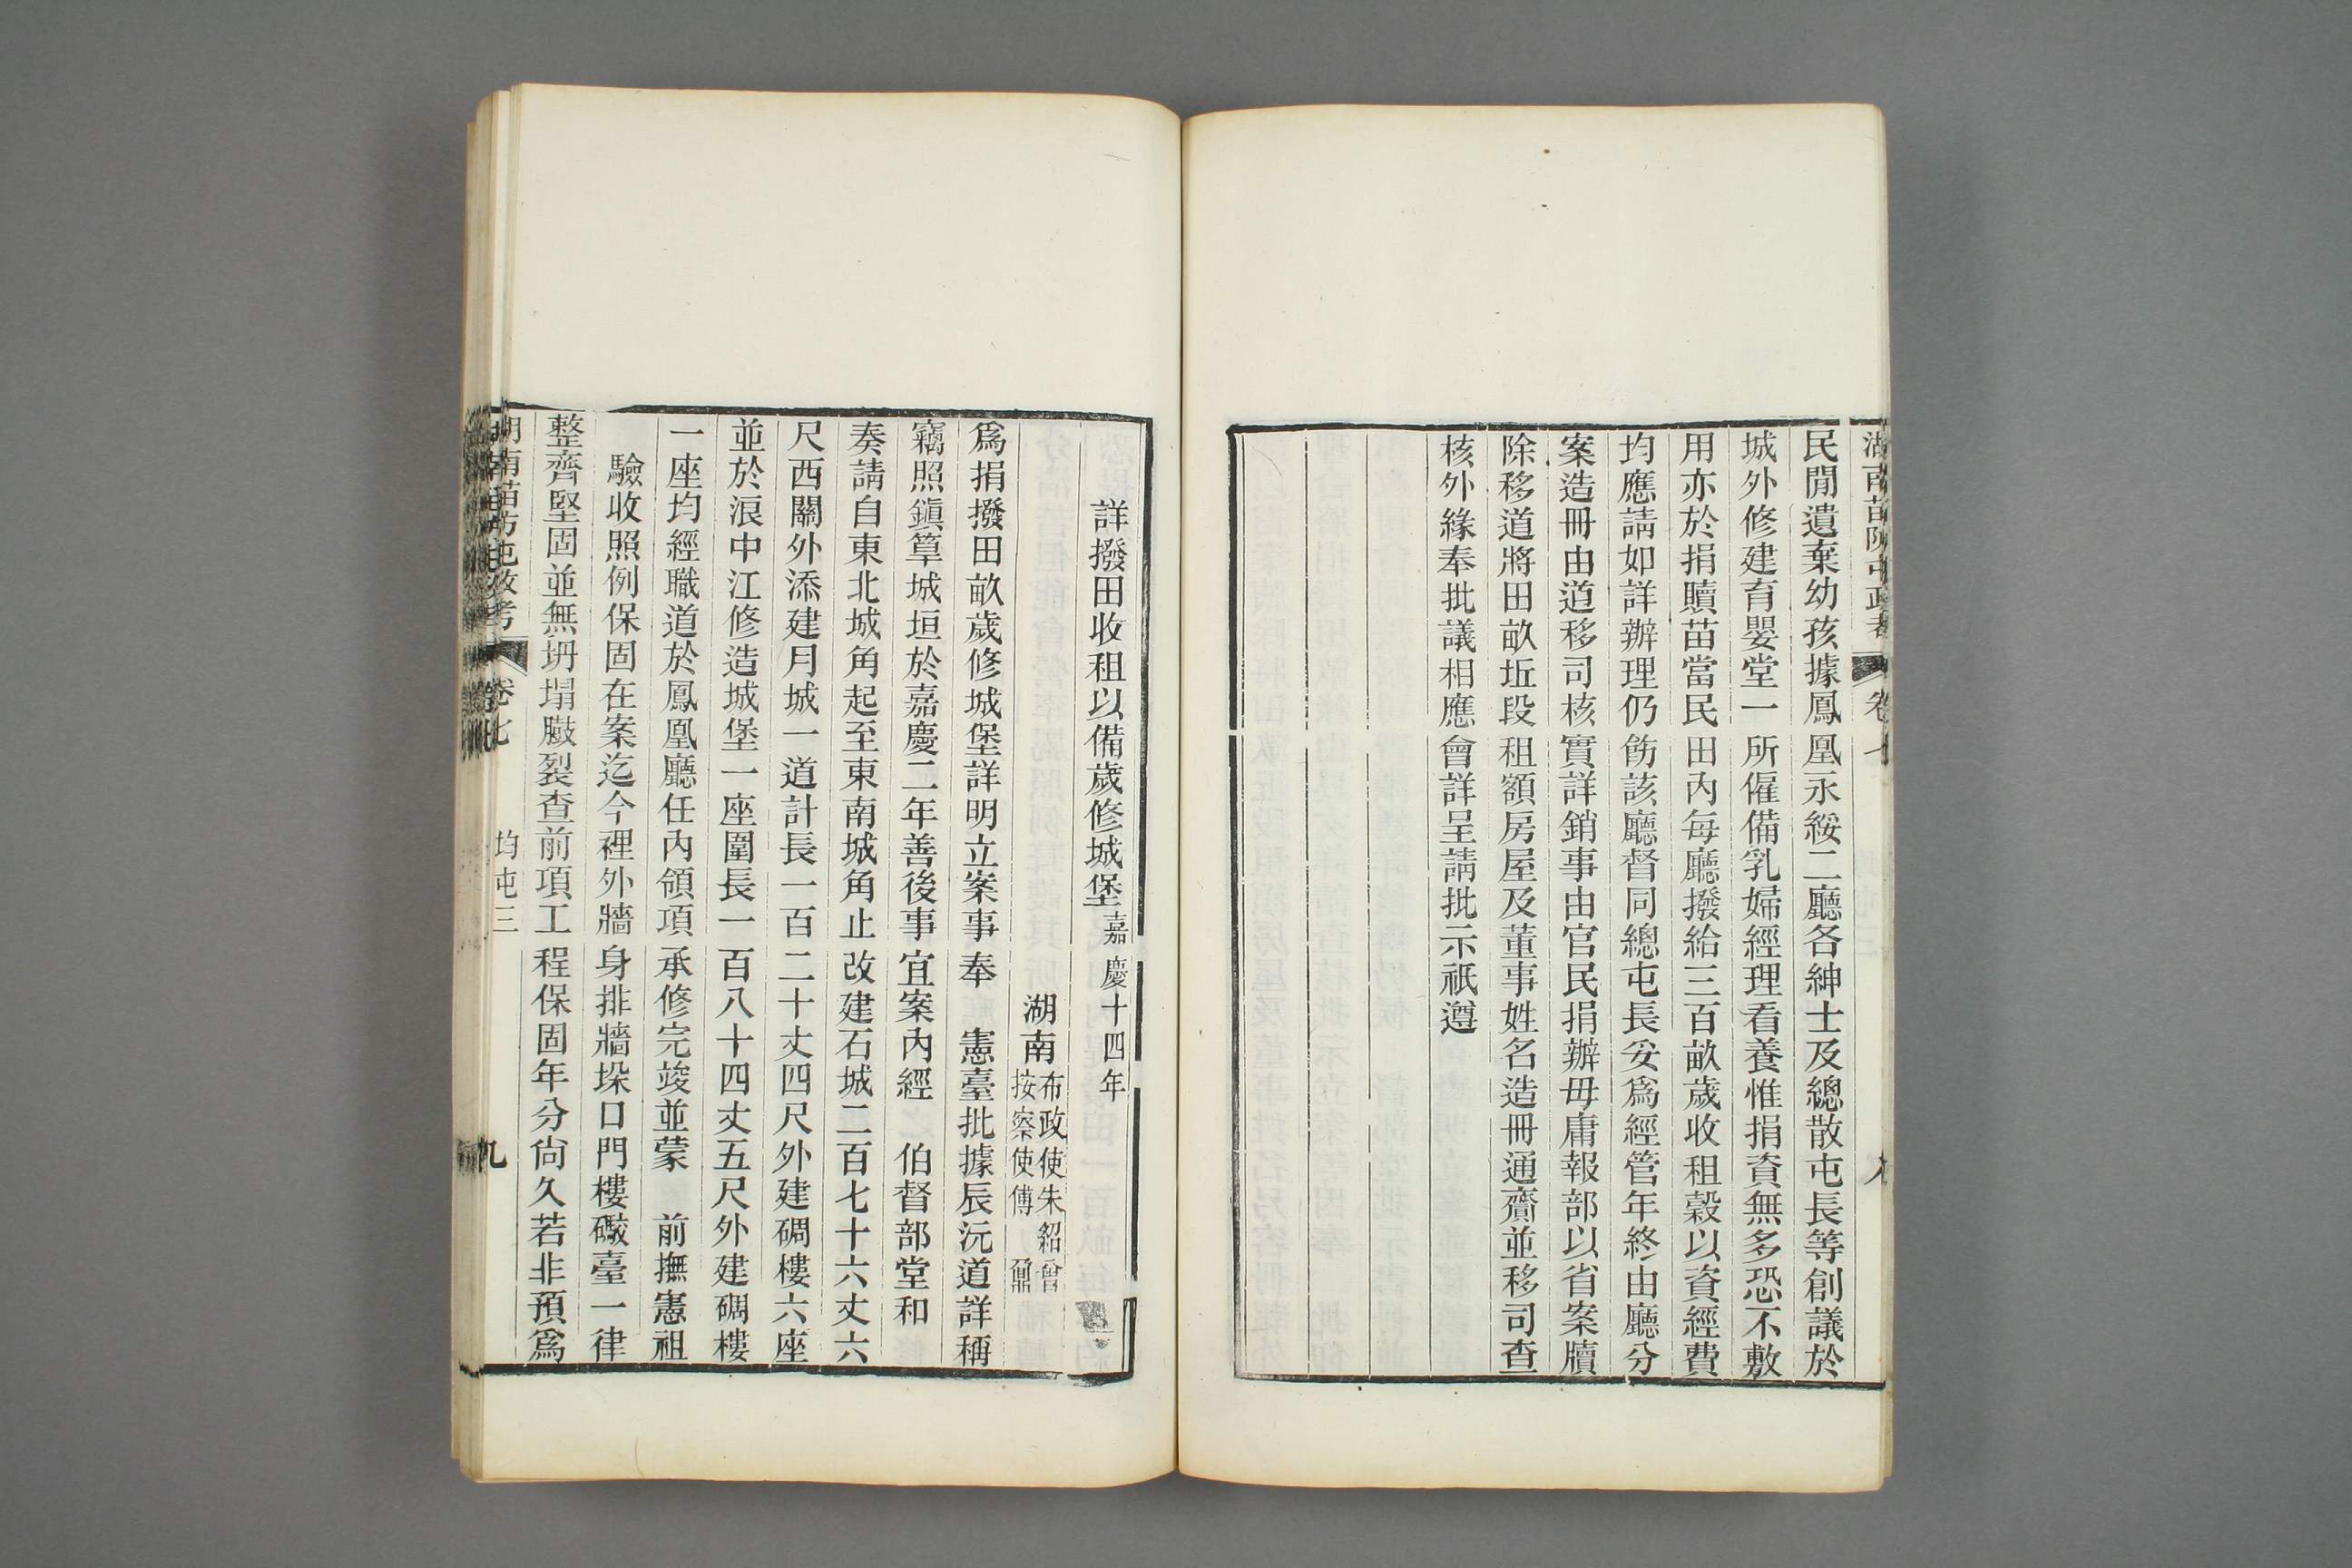 湖南苗防屯政考 卷七 八
民閒遺棄幼孩據鳳凰永綏二廳各紳士及總散屯長等創議於
城外修建育嬰堂一所僱備乳婦經理看養惟捐資無多恐不敷
用亦於捐贖苗當民田內每廳撥給三百畝歲收租穀以資經費
均應請如詳辦理仍飭該廳督同總屯長妥爲經管年終由廳分
案造冊由道移司核實詳銷事由官民捐辦毋庸報部以省案牘
除移道將田畝坵段租額房屋及董事姓名造冊通齎並移司查
核外緣奉批議相應會詳呈請批示祇遵
詳撥田收租以備歲修城堡嘉慶十四年
湖南布政使朱紹曾按察使傅鼐
爲捐撥田畝歲修城堡詳明立案事奉 憲臺批據辰沅道詳稱
竊照鎭筸城垣於嘉慶二年善後事宜案內經 伯督部堂和
奏請自東北城角起至東南城角止改建石城二百七十六丈六
尺西關外添建月城一道計長一百二十丈四尺外建碉樓六座
並於浪中江修造城堡一座圍長一百八十四丈五尺外建碉樓
一座均經職道於鳳凰廳任內領項承修完竣並蒙 前撫憲祖
驗收照例保固在案迄今裡外牆身排牆垛口門樓礮臺一律
整齊堅固並無坍塌臌裂查前項工程保固年分尙久若非預爲
湖南苗防屯政考 卷七 均屯三 九